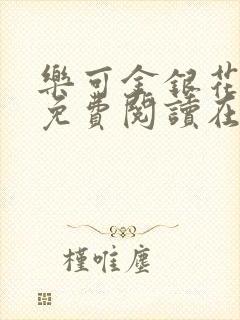 樂可金銀花
免費閱讀在
槿唯塵